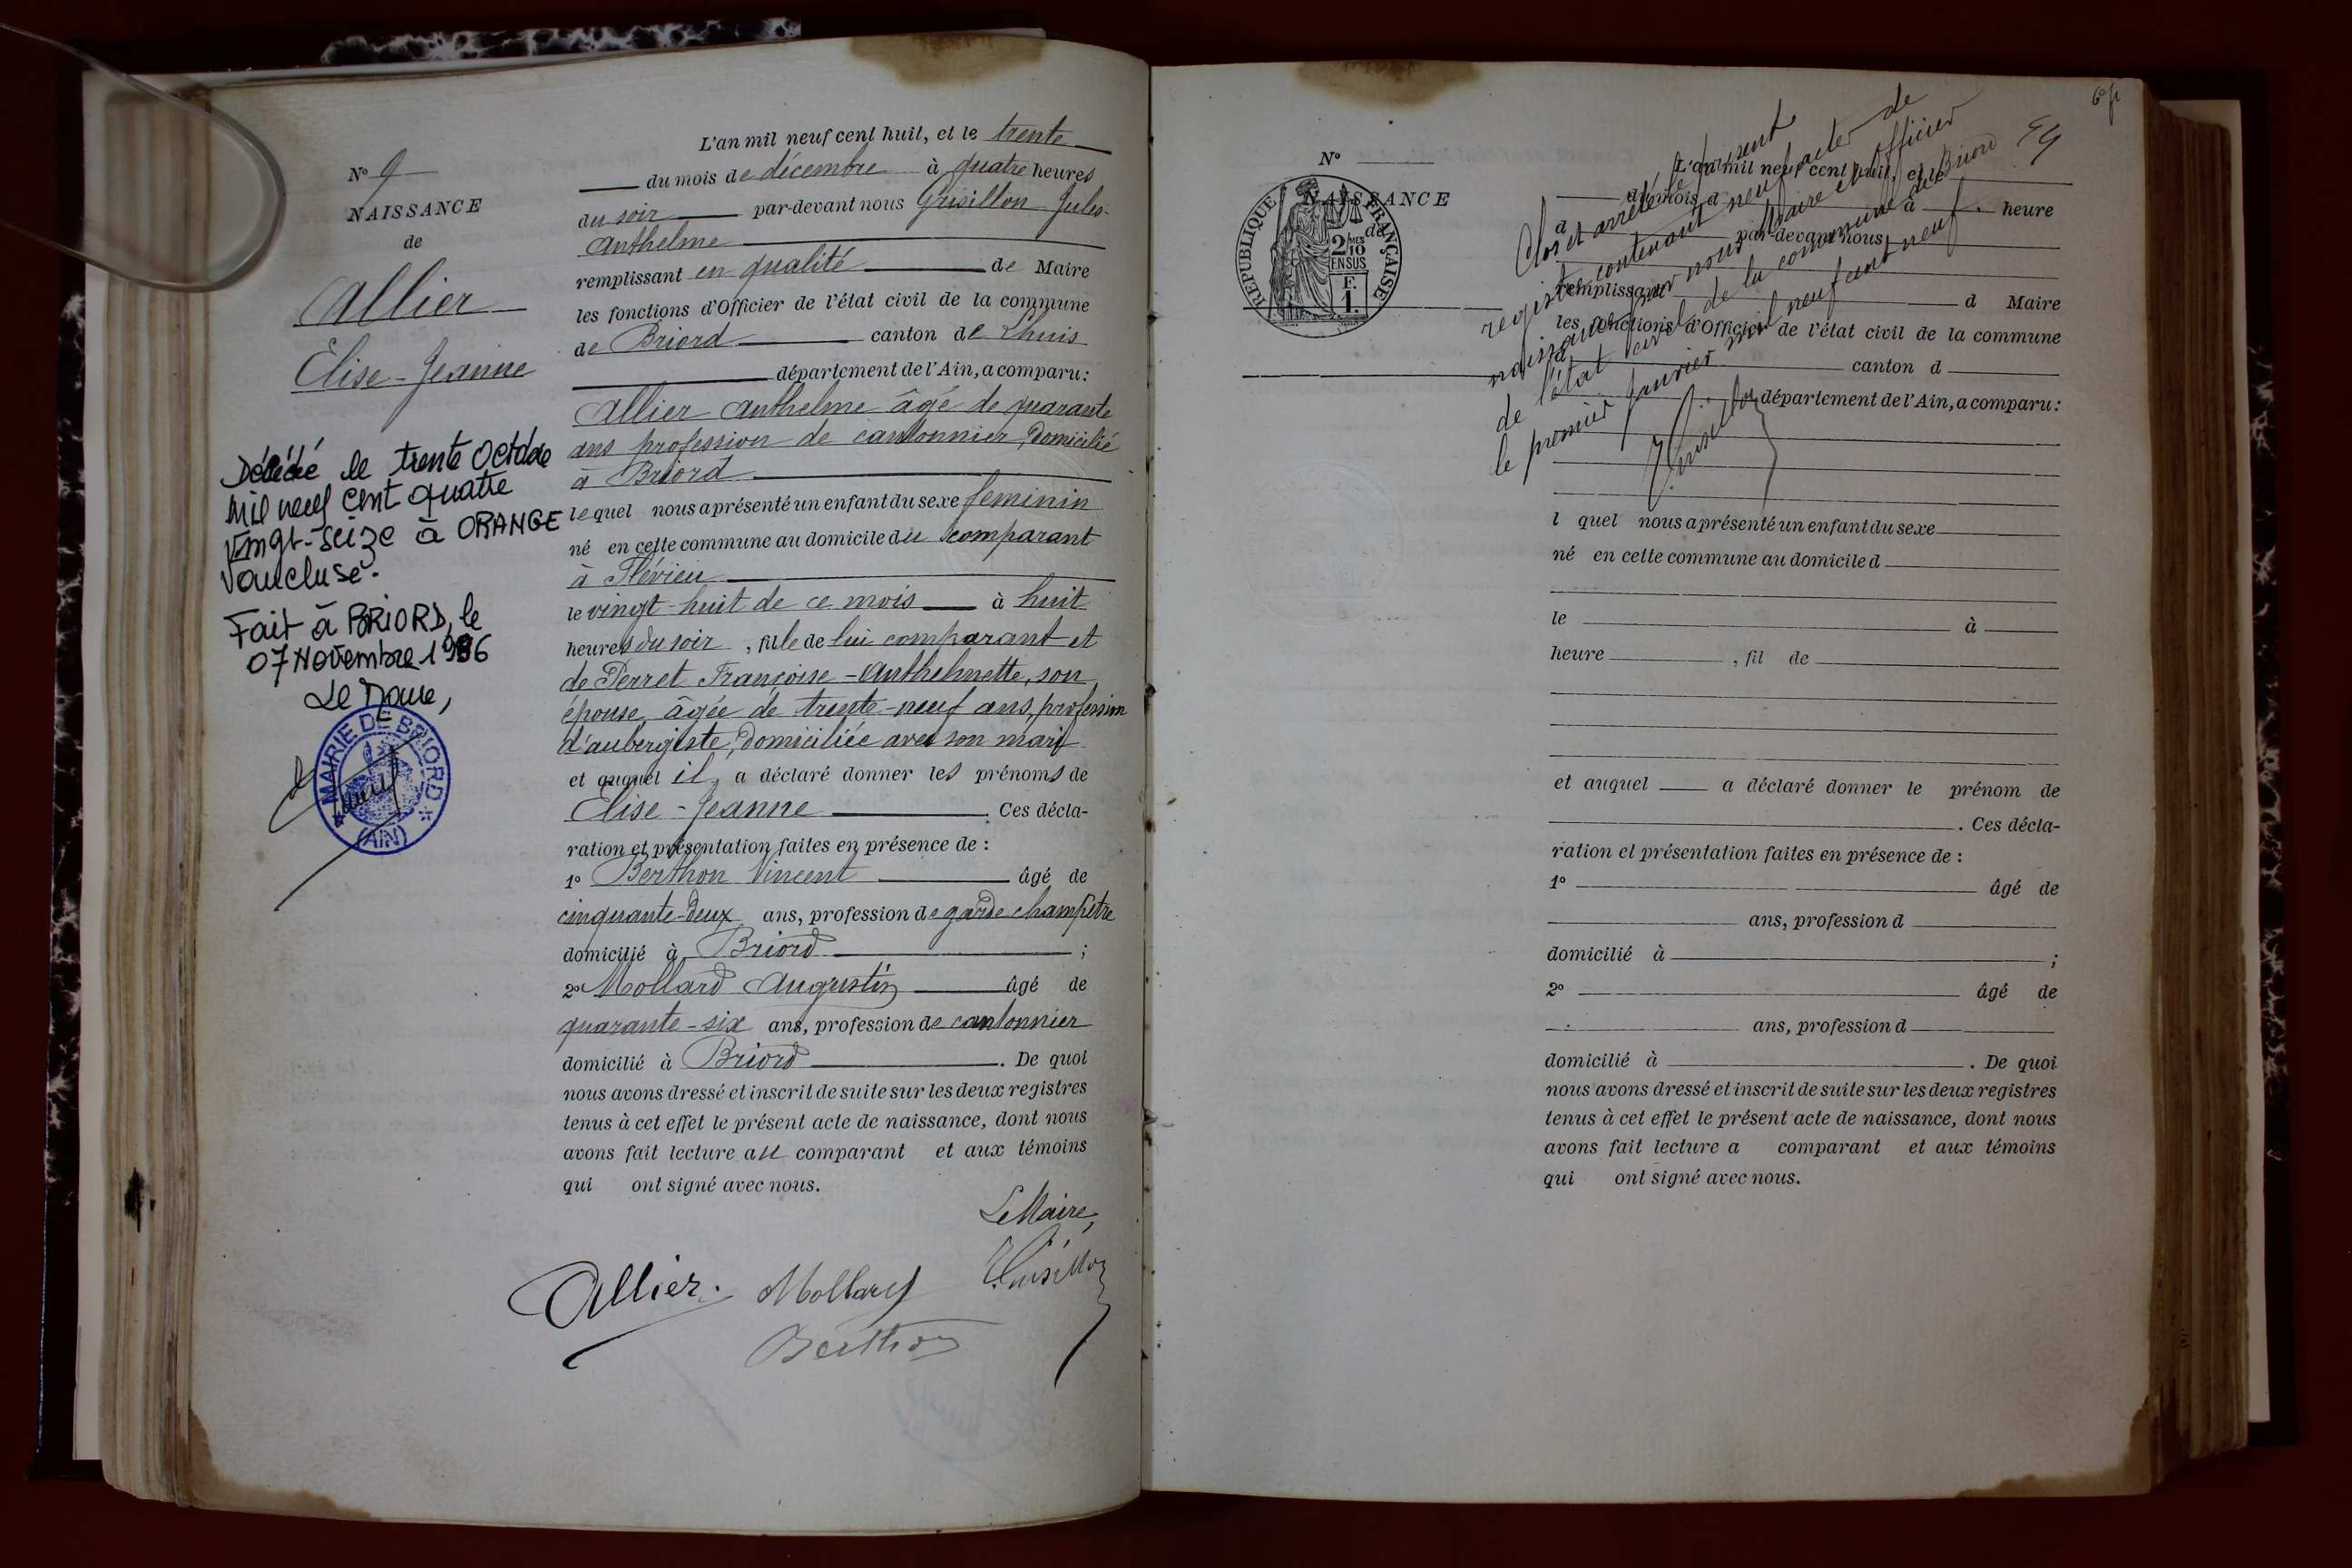 N° 9
NAISSANCE
de
Allier
Elise-Jeanne
Décédé le trente Octobre
mil neuf cent quatre
vingt-seize à ORANGE
Vaucluse.
Fait à BRIORD, le
07 Novembre 1996
Le Maire,
MAIRIE DE BRIORD
(AIN)
L'an mil neuf cent huit, et le trente
du mois de décembre à quatre heures
du soir par-devant nous Grisillon Jules-
Anthelme
remplissant en qualité de Maire
les fonctions d'Officier de l'état civil de la commune
de Briord canton de Lhuis
département de l'Ain, a comparu :
Allier Anthelme âgé de quarante
ans profession de cantonnier, domicilié
à Briord
lequel nous a présenté un enfant du sexe feminin
né en cette commune au domicile du comparant
à Flévieu
le vingt-huit de ce mois à huit
heures du soir, fille de lui comparant et
de Perret Françoise-Anthelmette, son
épouse, âgée de trente-neuf ans, profession
d'aubergiste, domiciliée avec son mari
et auquel il a déclaré donner les prénoms de
Elise-Jeanne. Ces décla-
ration et présentation faites en présence de :
1° Berthon Vincent âgé de
cinquante-deux ans, profession de garde champêtre
domicilié à Briord ;
2° Mollard Augustin âgé de
quarante-six ans, profession de cantonnier
domicilié à Briord. De quoi
nous avons dressé et inscrit de suite sur les deux registres
tenus à cet effet le présent acte de naissance, dont nous
avons fait lecture au comparant et aux témoins
qui ont signé avec nous.
Le Maire,
Allier. Mollard Grisillon
Berthon
N°
NAISSANCE
de
RÉPUBLIQUE FRANÇAISE
2 MES
10
EN SUS
F.
1.
Clos et arrêté le présent
registre contenant neuf actes de
naissance par nous Maire et officier
de l'état civil de la commune de Briord
le premier janvier mil neuf cent neuf.
Grisillon
L'an mil neuf cent huit, et le
du mois d à heure
d par-devant nous
remplissant d Maire
les fonctions d'Officier de l'état civil de la commune
d canton d
département de l'Ain, a comparu :
l quel nous a présenté un enfant du sexe
né en cette commune au domicile d
le à
heure , fil de
et auquel a déclaré donner le prénom de
. Ces décla-
ration et présentation faites en présence de :
1° âgé de
ans, profession d
domicilié à ;
2° âgé de
ans, profession d
domicilié à . De quoi
nous avons dressé et inscrit de suite sur les deux registres
tenus à cet effet le présent acte de naissance, dont nous
avons fait lecture a comparant et aux témoins
qui ont signé avec nous.